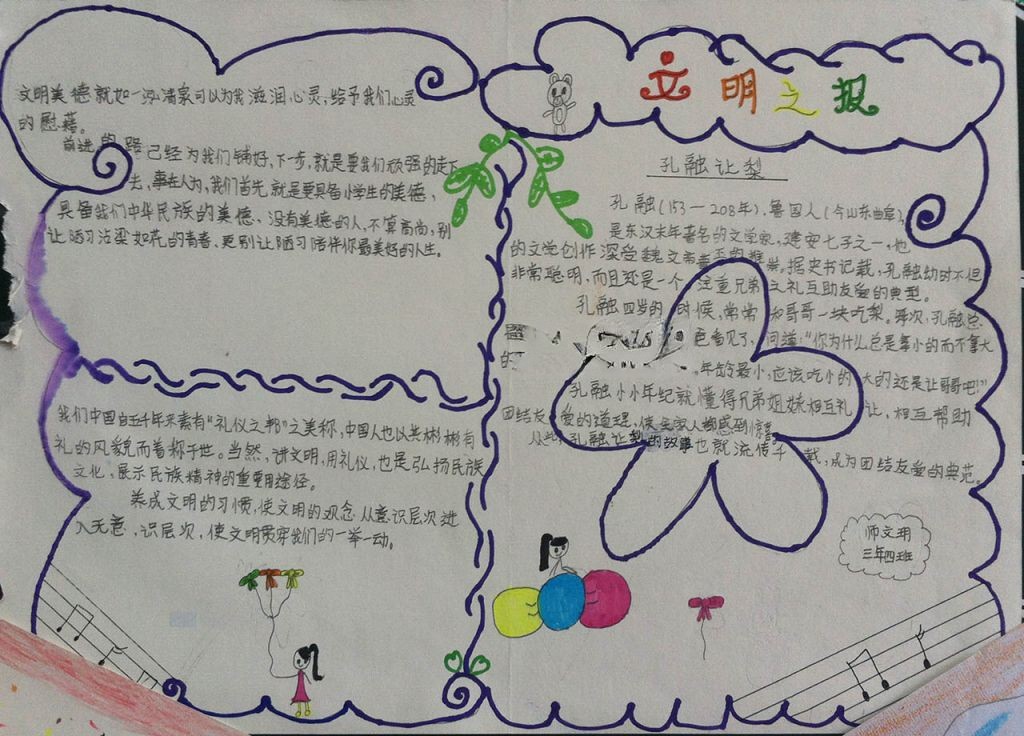 文明之报
文明美德就如一泓清泉可以为我滋润心灵,给予我们心灵
的慰藉。
前进的路已经为我们铺好,下一步,就是要我们顽强的走下
去,事在人为,我们首先就是要具备小学生的美德,
具备我们中华民族的美德、没有美德的人,不算高尚,别
让陋习沾染如花的青春、更别让陋习陪伴你最美好的人生。
我们中国自五千年来素有“礼仪之邦”之美称,中国人也以其彬彬有
礼的风貌而着称于世。当然,讲文明,用礼仪,也是弘扬民族
文化,展示民族精神的重要途径。
养成文明的习惯,使文明的观念从意识层次进
入无意,识层次,使文明贯穿我们的一举一动。
孔融让梨
孔融(153—208年),鲁国人(今山东曲阜),
是东汉末年著名的文学家,建安七子之一,他
的文学创作深受魏文帝曹丕的推崇。据史书记载,孔融幼时不但
非常聪明,而且还是一个注重兄弟之礼互助友爱的典型。
孔融四岁的时候,常常和哥哥一块吃梨。每次,孔融总
爸看见了,问道:“你为什么总是拿小的而不拿大
的 年龄最小,应该吃小的大的还是让哥哥吧!”
孔融小小年纪就懂得兄弟姐妹相互礼让,相互帮助
团结友爱的道理,使全家人都感到惊喜
从此孔融让梨的故事也就流传千载,成为团结友爱的典范。
师文玥
三年四班